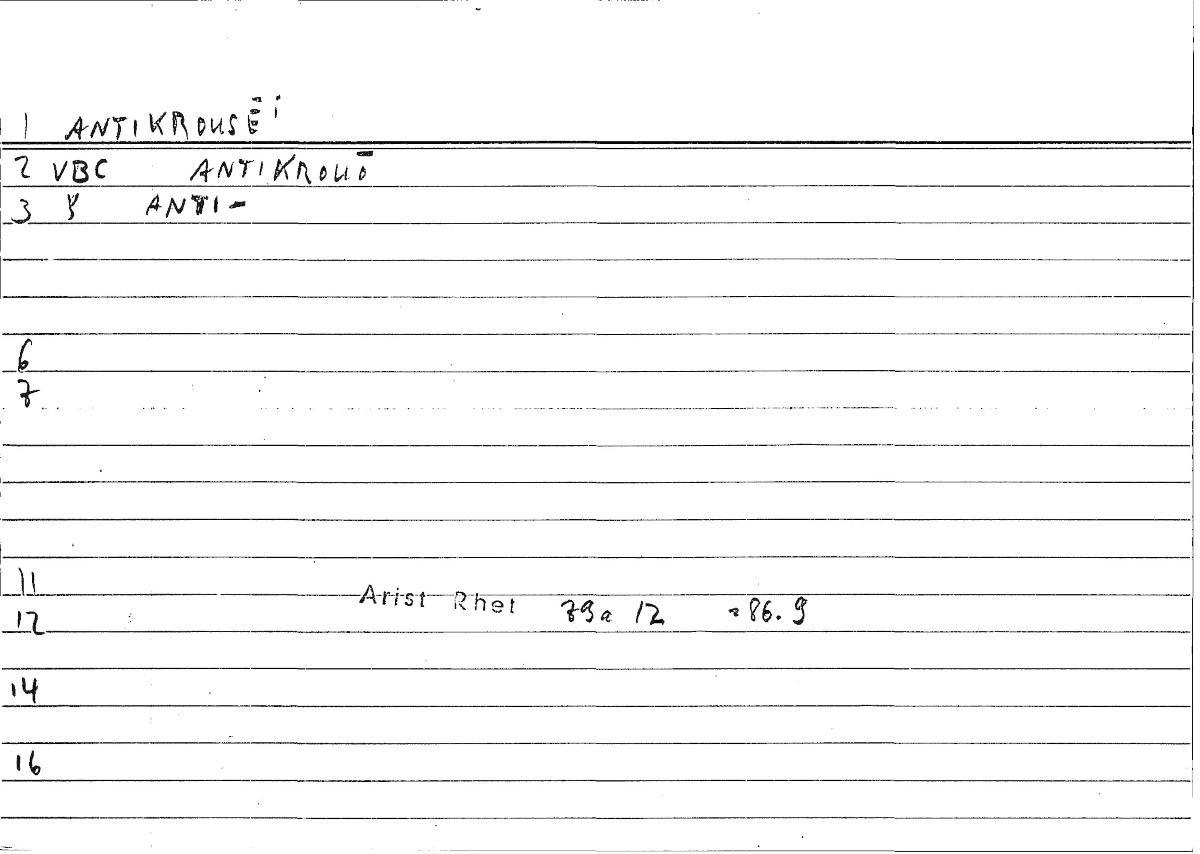 1 ANTIKROUSĒi
2 VBC ANTIKROUŌ
3 ANTI-
6
7
11
12 Arist Rhet 79a 12 =86.9
14
16